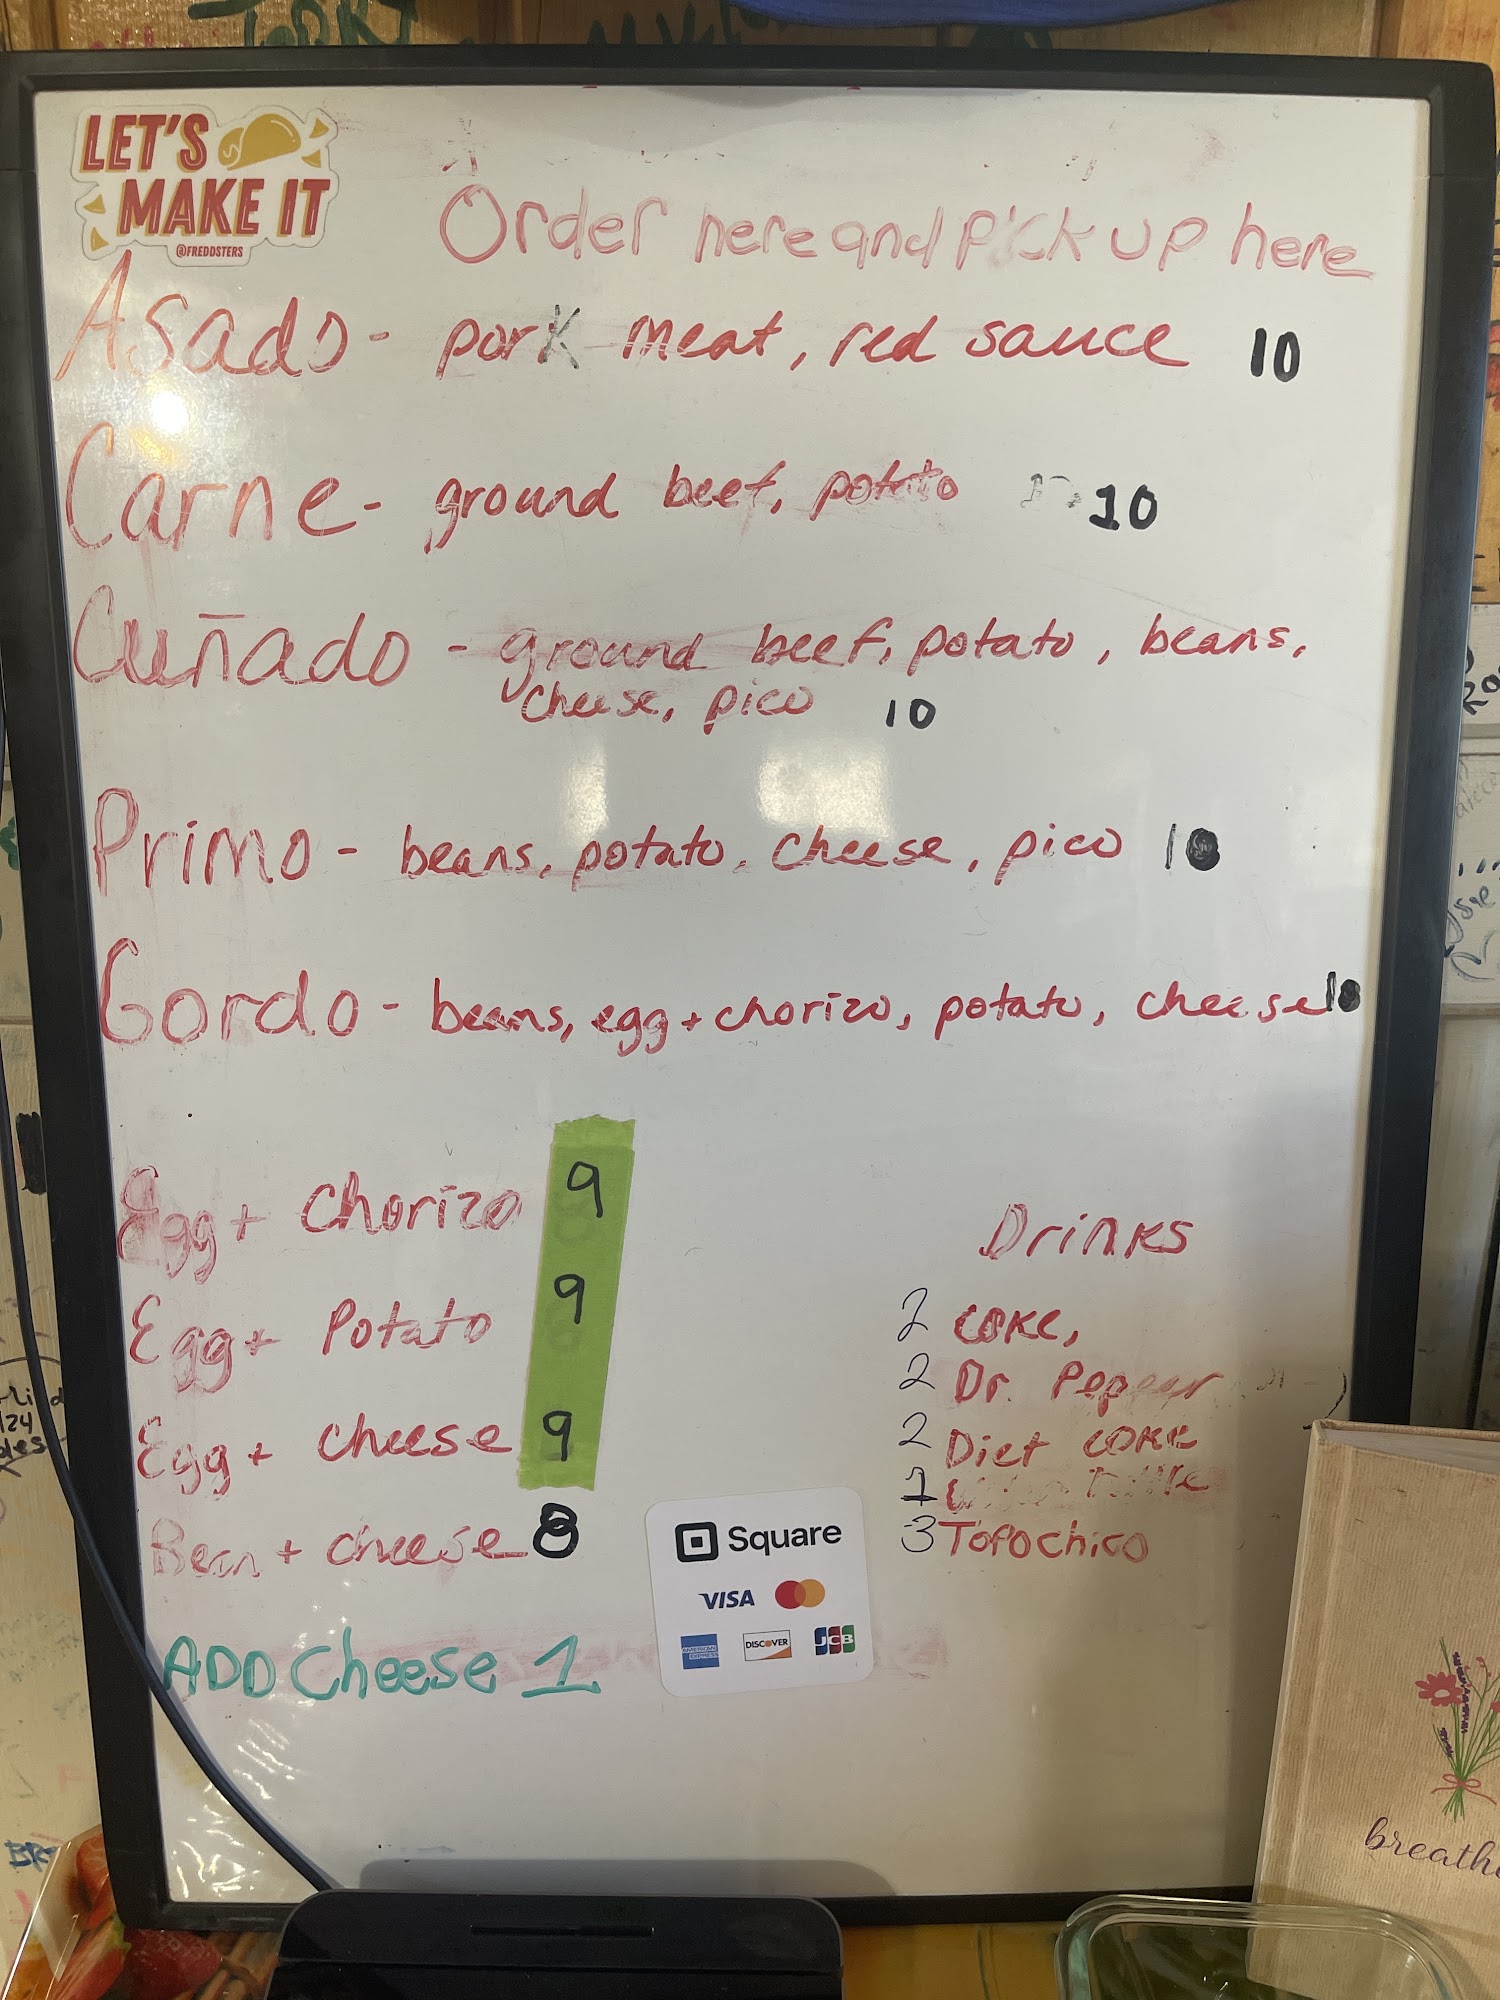 LET'S
MAKE IT
@FREDDSTERS
Order here and pick up here
Asado - pork meat, red sauce 10
Carne - ground beef, potato 10
Cuñado - ground beef, potato, beans,
cheese, pico 10
Primo - beans, potato, cheese, pico 10
Gordo - beans, egg + chorizo, potato, cheese 10
Egg + Chorizo 9
Egg + Potato 9
Egg + cheese 9
Bean + cheese 8
ADD Cheese 1
Drinks
2 COKE,
2 Dr. Pepper
2 Diet COKE
1
3 Topochico
Square
VISA
AMERICAN EXPRESS
DISCOVER
JCB
breathe